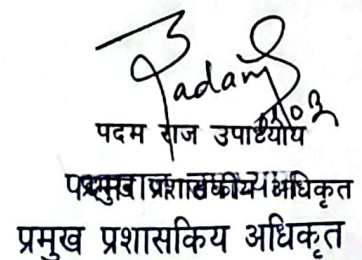 Padam
पदम राज उपाध्याय
प्रशासकीय अधिकृत
प्रमुख प्रशासकिय अधिकृत